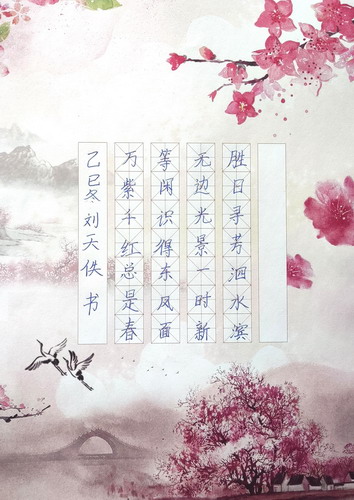 胜日寻芳泗水滨
无边光景一时新
等闲识得东风面
万紫千红总是春
乙巳冬刘天佚书